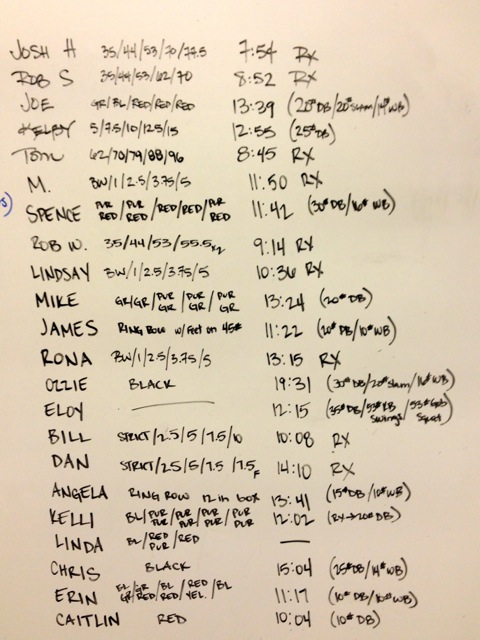 JOSH H 35/44/53/70/77.5 7:54 RX
ROB S 35/44/53/62/70 8:52 RX
JOE GR/BL/RED/RED/RED 13:39 (20# DB/20# SLAM/14# WB)
KELBY 5/7.5/10/12.5/15 12:55 (25# DB)
TOM 62/70/79/88/96 8:45 RX
M. BW/1/2.5/3.75/5 11:50 RX
SPENCE PUR RED/PUR RED/RED/RED/PUR RED 11:42 (30# DB/16# WB)
ROB W. 35/44/53/55.5 x2 9:14 RX
LINDSAY BW/1/2.5/3.75/5 10:36 RX
MIKE GR/GR/PUR GR/PUR GR/PUR GR 13:24 (20# DB)
JAMES RING ROW w/ Feet on 45# 11:22 (20# DB/10# WB)
RONA BW/1/2.5/3.75/5 13:15 RX
OZZIE BLACK 19:31 (30# DB/20# Slam/16# WB)
ELOY 12:15 (35# DB/53# KB Swings/53# Gob Squat)
BILL STRICT/2.5/5/7.5/10 10:08 RX
DAN STRICT/2.5/5/7.5/7.5F 14:10 RX
ANGELA RING ROW 12 in box 13:41 (15# DB/10# WB)
KELLI BL/PUR PUR/PUR PUR/PUR PUR/PUR PUR 12:02 (RX→20# DB)
LINDA BL/RED PUR/RED
CHRIS BLACK 15:04 (25# DB/14# WB)
ERIN BL GR/GR RED/BL RED/RED YEL./BL 11:17 (10# DB/10# WB)
CAITLIN RED 10:04 (10# DB)